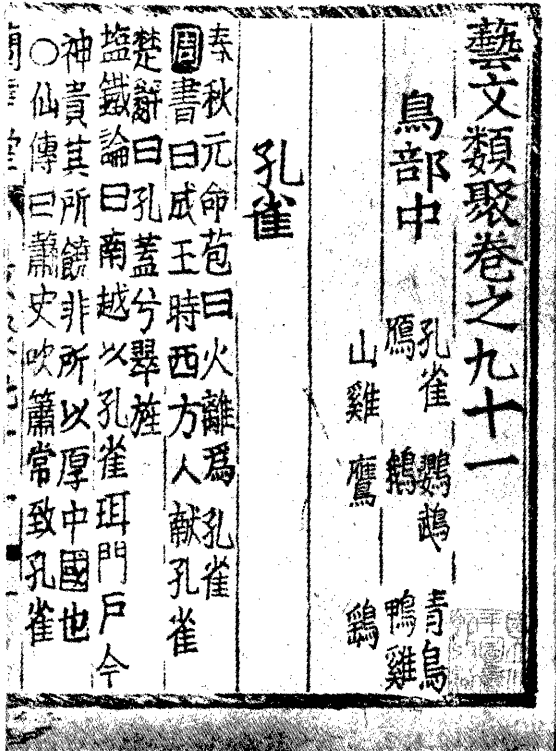 藝文類聚卷之九十一
鳥部中
孔雀 鸚鵡 青鳥
鴈 鵝 鴨雞
山雞 鷹 鷂
孔雀
春秋元命苞曰火離爲孔雀
周書曰成王時西方人献孔雀
楚辭曰孔蓋兮翠旌
塩鐵論曰南越以孔雀珥門戶今
神貴其所饒非所以厚中國也
○仙傳曰蕭史吹簫常致孔雀